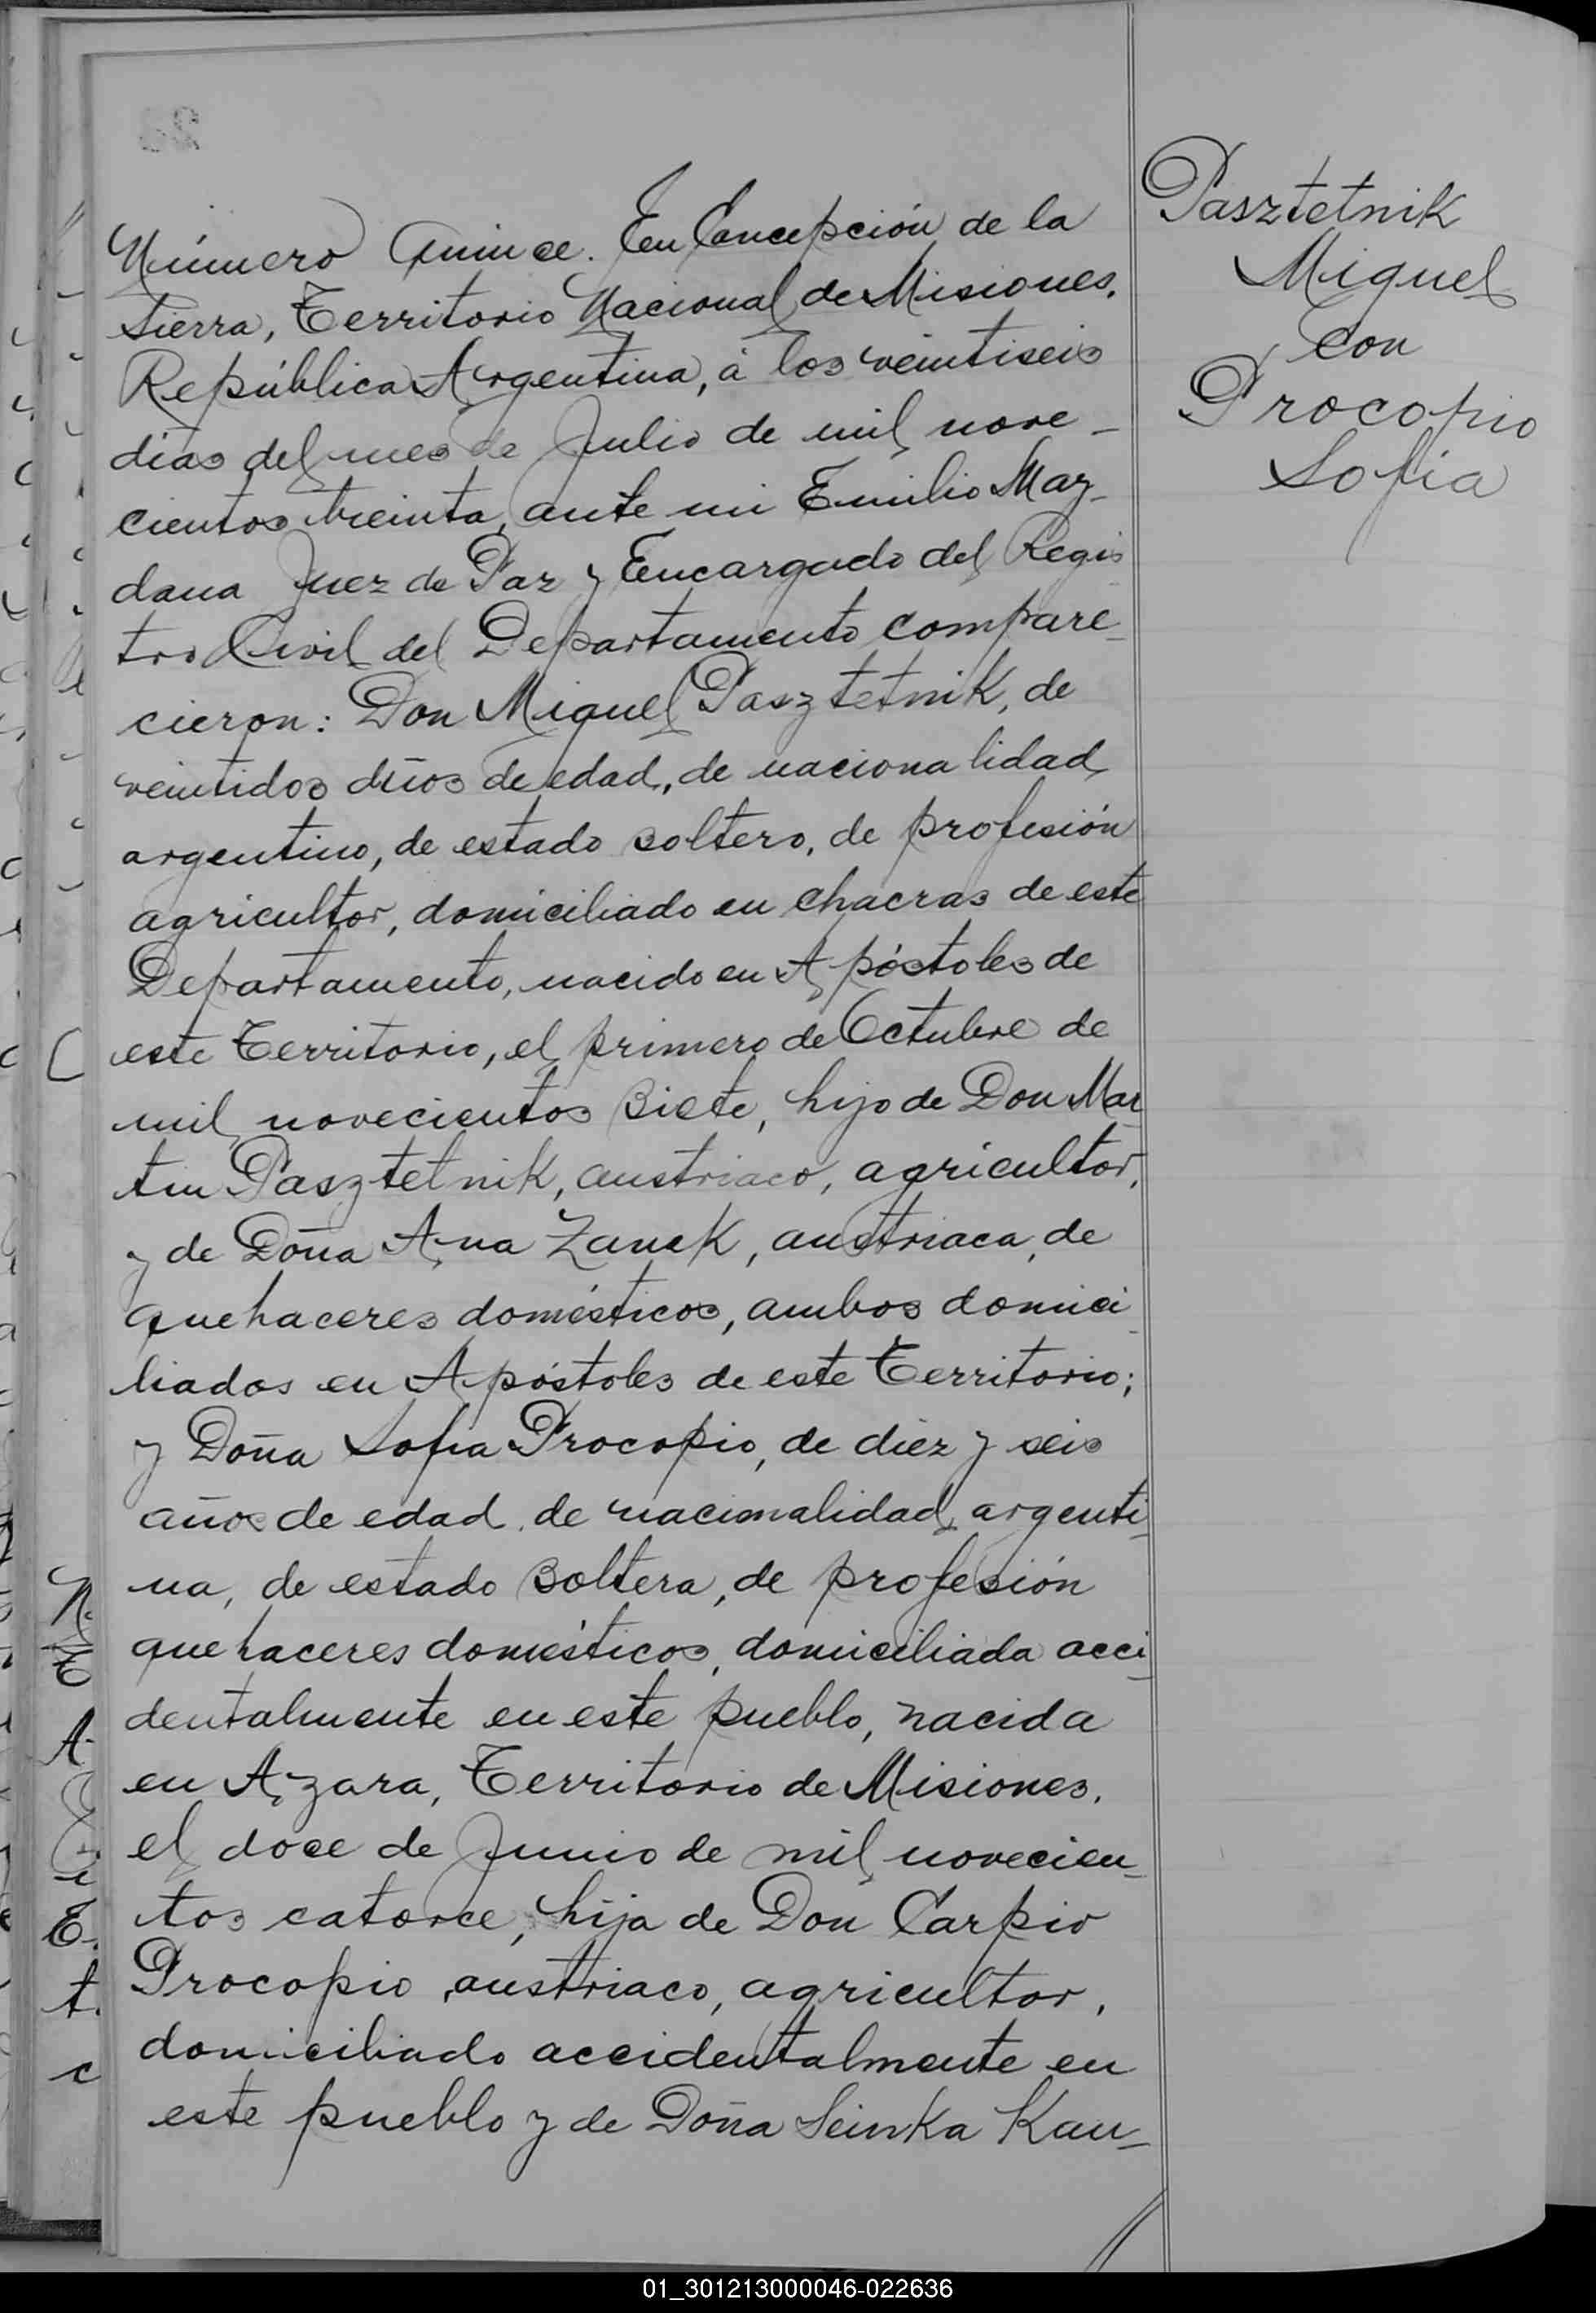 Número Quince. En Concepción de la
Sierra, Territorio Nacional de Misiones,
República Argentina, á los veintiseis
dias del mes de Julio de mil nove-
cientos treinta, ante mi Emilio May-
dana Juez de Paz y Encargado del Regis
tro Civil del Departamento compare-
cieron: Don Miguel Pasztetnik, de
veintidos años de edad, de nacionalidad
argentino, de estado soltero, de profesión
agricultor, domiciliado en chacras de este
Departamento, nacido en Apóstoles de
este Territorio, el primero de Octubre de
mil novecientos siete, hijo de Don Mar-
tin Pasztetnik, austriaco, agricultor,
y de Doña Ana Zanek, austriaca, de
quehaceres domésticos, ambos domici-
liados en Apóstoles de este Territorio;
y Doña Sofia Procopio, de diez y seis
años de edad, de nacionalidad argenti-
na, de estado soltera, de profesión
quehaceres domésticos, domiciliada acci-
dentalmente en este pueblo, nacida
en Azara, Territorio de Misiones,
el doce de Junio de mil novecien-
tos catorce, hija de Don Carpio
Procopio, austriaco, agricultor,
domiciliado accidentalmente en
este pueblo y de Doña Seinka Kau-
Pasztetnik
Miguel
con
Procopio
Sofia
01_301213000046-022636